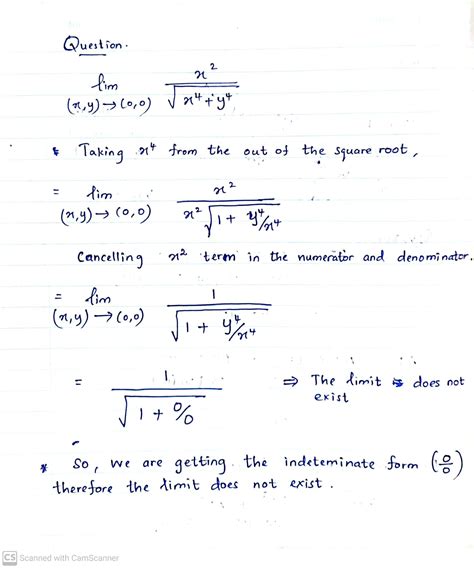 Question.
lim (x,y) → (0,0) x² / √(x⁴ + y⁴)
* Taking x⁴ from the out of the square root,
= lim (x,y) → (0,0) x² / (x² √(1 + y⁴/x⁴))
Cancelling x² term in the numerator and denominator.
= lim (x,y) → (0,0) 1 / √(1 + y⁴/x⁴)
= 1 / √(1 + 0/0) ⇒ The limit is does not
exist
* So, we are getting the indeteminate form (0/0)
therefore the limit does not exist.
CS Scanned with CamScanner